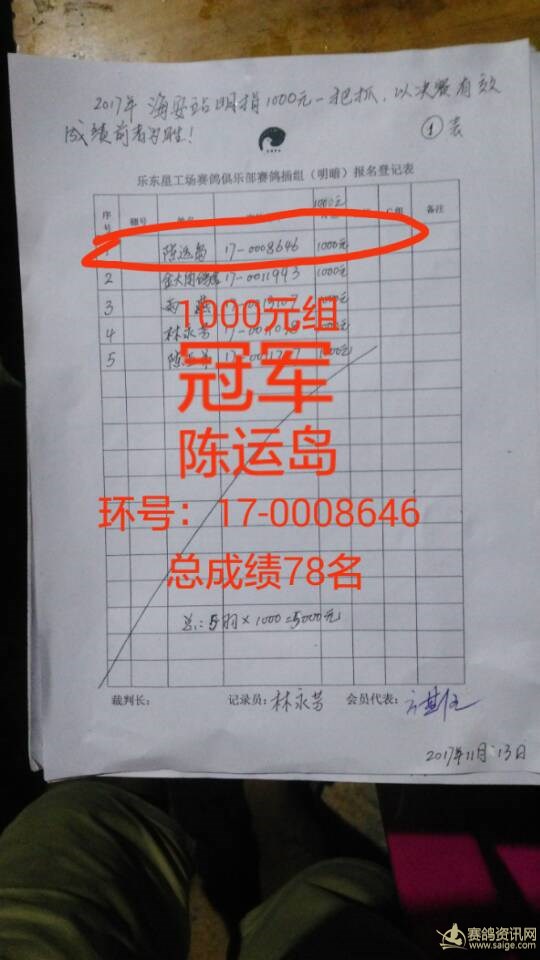 2017年 海安站明插1000元一把抓，以决赛有效
成绩前者为胜！ ①表
乐东星工场赛鸽俱乐部赛鸽插组（明暗）报名登记表
序号 棚号 1000元 备注
1 陈运岛 17-0008646 1000元
2 17-0011993 1000元
3 1000元
4 林永芳 1000元
5 1000元
1000元组
冠军
陈运岛
环号：17-0008646
总成绩78名
总：5羽×1000=5000元
裁判长： 记录员：林永芳 会员代表：
2017年11月13日
赛鸽资讯网
www.saige.com